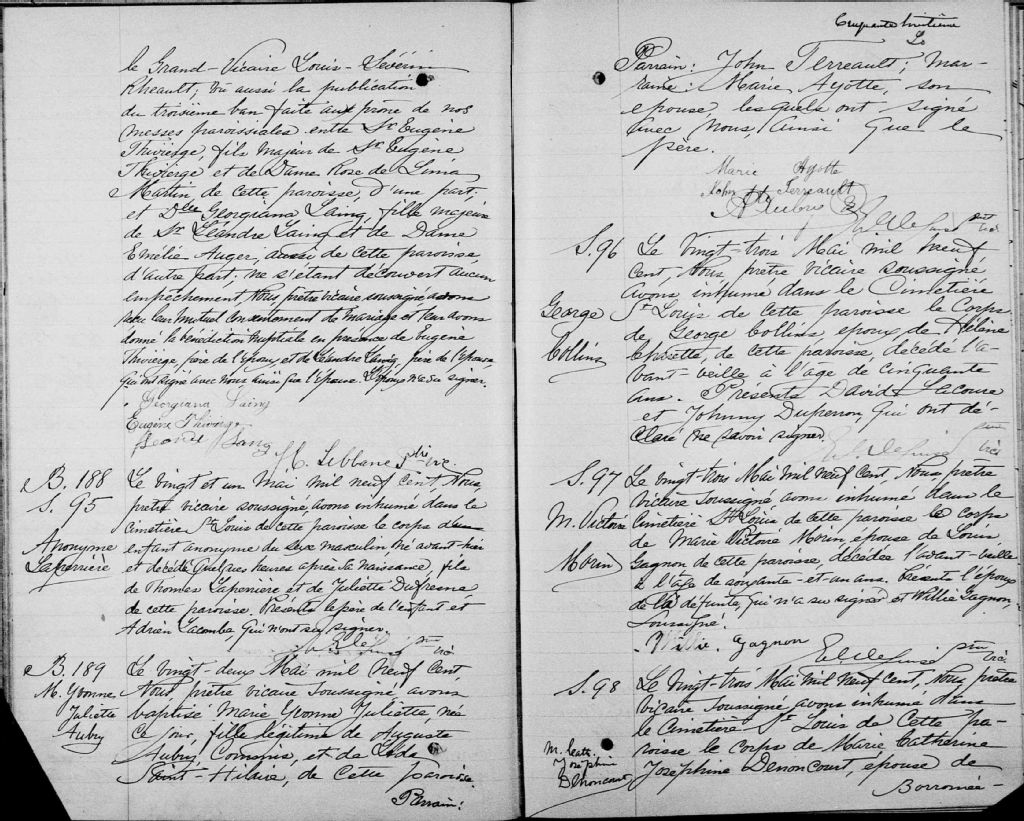 le Grand-Vicaire Louis-Sévérin
Rheault; vu aussi la publication
du troisième ban faite aux prône de nos
messes paroissiales entre Sr Eugène
Thivierge, fils majeur de Sr Eugène
Thivierge et de Dame Rose de Lima
Martin, de cette paroisse, d'une part,
et Dlle Georgiana Laing, fille majeure
de Sr Léandre Laing et de Dame
Emélie Auger, aussi de cette paroisse,
d'autre part; ne s'étant découvert aucun
empêchement, Nous, prêtre vicaire soussigné avons
reçu leur mutuel consentement de mariage et leur avons
donné la bénédiction nuptiale en présence de Eugène
Thivierge, père de l'époux, et de Léandre Laing, père de l'épouse,
qui ont signé avec nous ainsi que l'épouse. L'époux n'a su signer.
Georgiana Laing
Eugène Thivierge
Laing
H. Leblanc Ptre vic.
B. 188
S. 95
Anonyme
Laperrière
Le vingt et un Mai mil neuf cent, Nous,
prêtre vicaire soussigné, avons inhumé dans le
Cimetière St Louis de cette paroisse le corps d'un
enfant anonyme du sexe masculin, né avant-hier
et décédé quelques heures après sa naissance, fils
de Thomas Laperrière et de Juliette Dufresne,
de cette paroisse. Présents le père de l'enfant et
Adrien Lacombe, qui n'ont su signer.
ptre vic
B. 189
M. Yvonne
Juliette
Aubry
Le vingt-deux Mai mil neuf cent,
Nous prêtre vicaire soussigné avons
baptisé Marie Yvonne Juliette, née
ce jour, fille légitime de Auguste
Aubry, Commis, et de
Saint-Hilaire, de cette paroisse.
Parrain:
Cinquante huitième
Parrain: John Terreault; Mar-
raine: Marie Ayotte, son
épouse, lesquels ont signé
avec Nous, ainsi que le
père.
Marie Ayotte
John Terreault
Aubry
ptre vic
S. 96
George
Collins
Le vingt-trois Mai mil neuf
cent, Nous prêtre vicaire soussigné
avons inhumé dans le Cimetière
St Louis de cette paroisse le corps
de George Collins, époux de
de cette paroisse, décédé l'a-
vant-veille à l'âge de cinquante
ans. Présents David Lacourse
et Johnny Dufresne, qui ont dé-
claré ne savoir signer.
ptre vic
S. 97
M. Victoire
Morin
Le vingt-trois Mai mil neuf cent, Nous, prêtre
vicaire soussigné avons inhumé dans le
cimetière St Louis de cette paroisse le corps
de Marie Victoire Morin, épouse de Louis
Gagnon de cette paroisse, décédée l'avant-veille
à l'âge de soixante-et-un ans. Présents l'époux
de la défunte, qui n'a su signer et Willie Gagnon,
soussigné.
Willie Gagnon
ptre vic
S. 98
M. Cath.
Joséphine
Denoncourt
Le vingt-trois Mai mil neuf cent, Nous prêtre
vicaire soussigné avons inhumé dans
le Cimetière St Louis de cette pa-
roisse le corps de Marie Catherine
Joséphine Denoncourt, épouse de
Borromée-